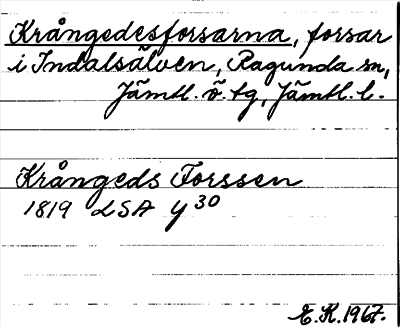 Krångedesforsarna, forsar
i Indalsälven, Ragunda sn,
Jämtl. ö. tg, Jämtl. l.
Krångeds Forssen
1819 LSA Y 30
E.K. 1967.